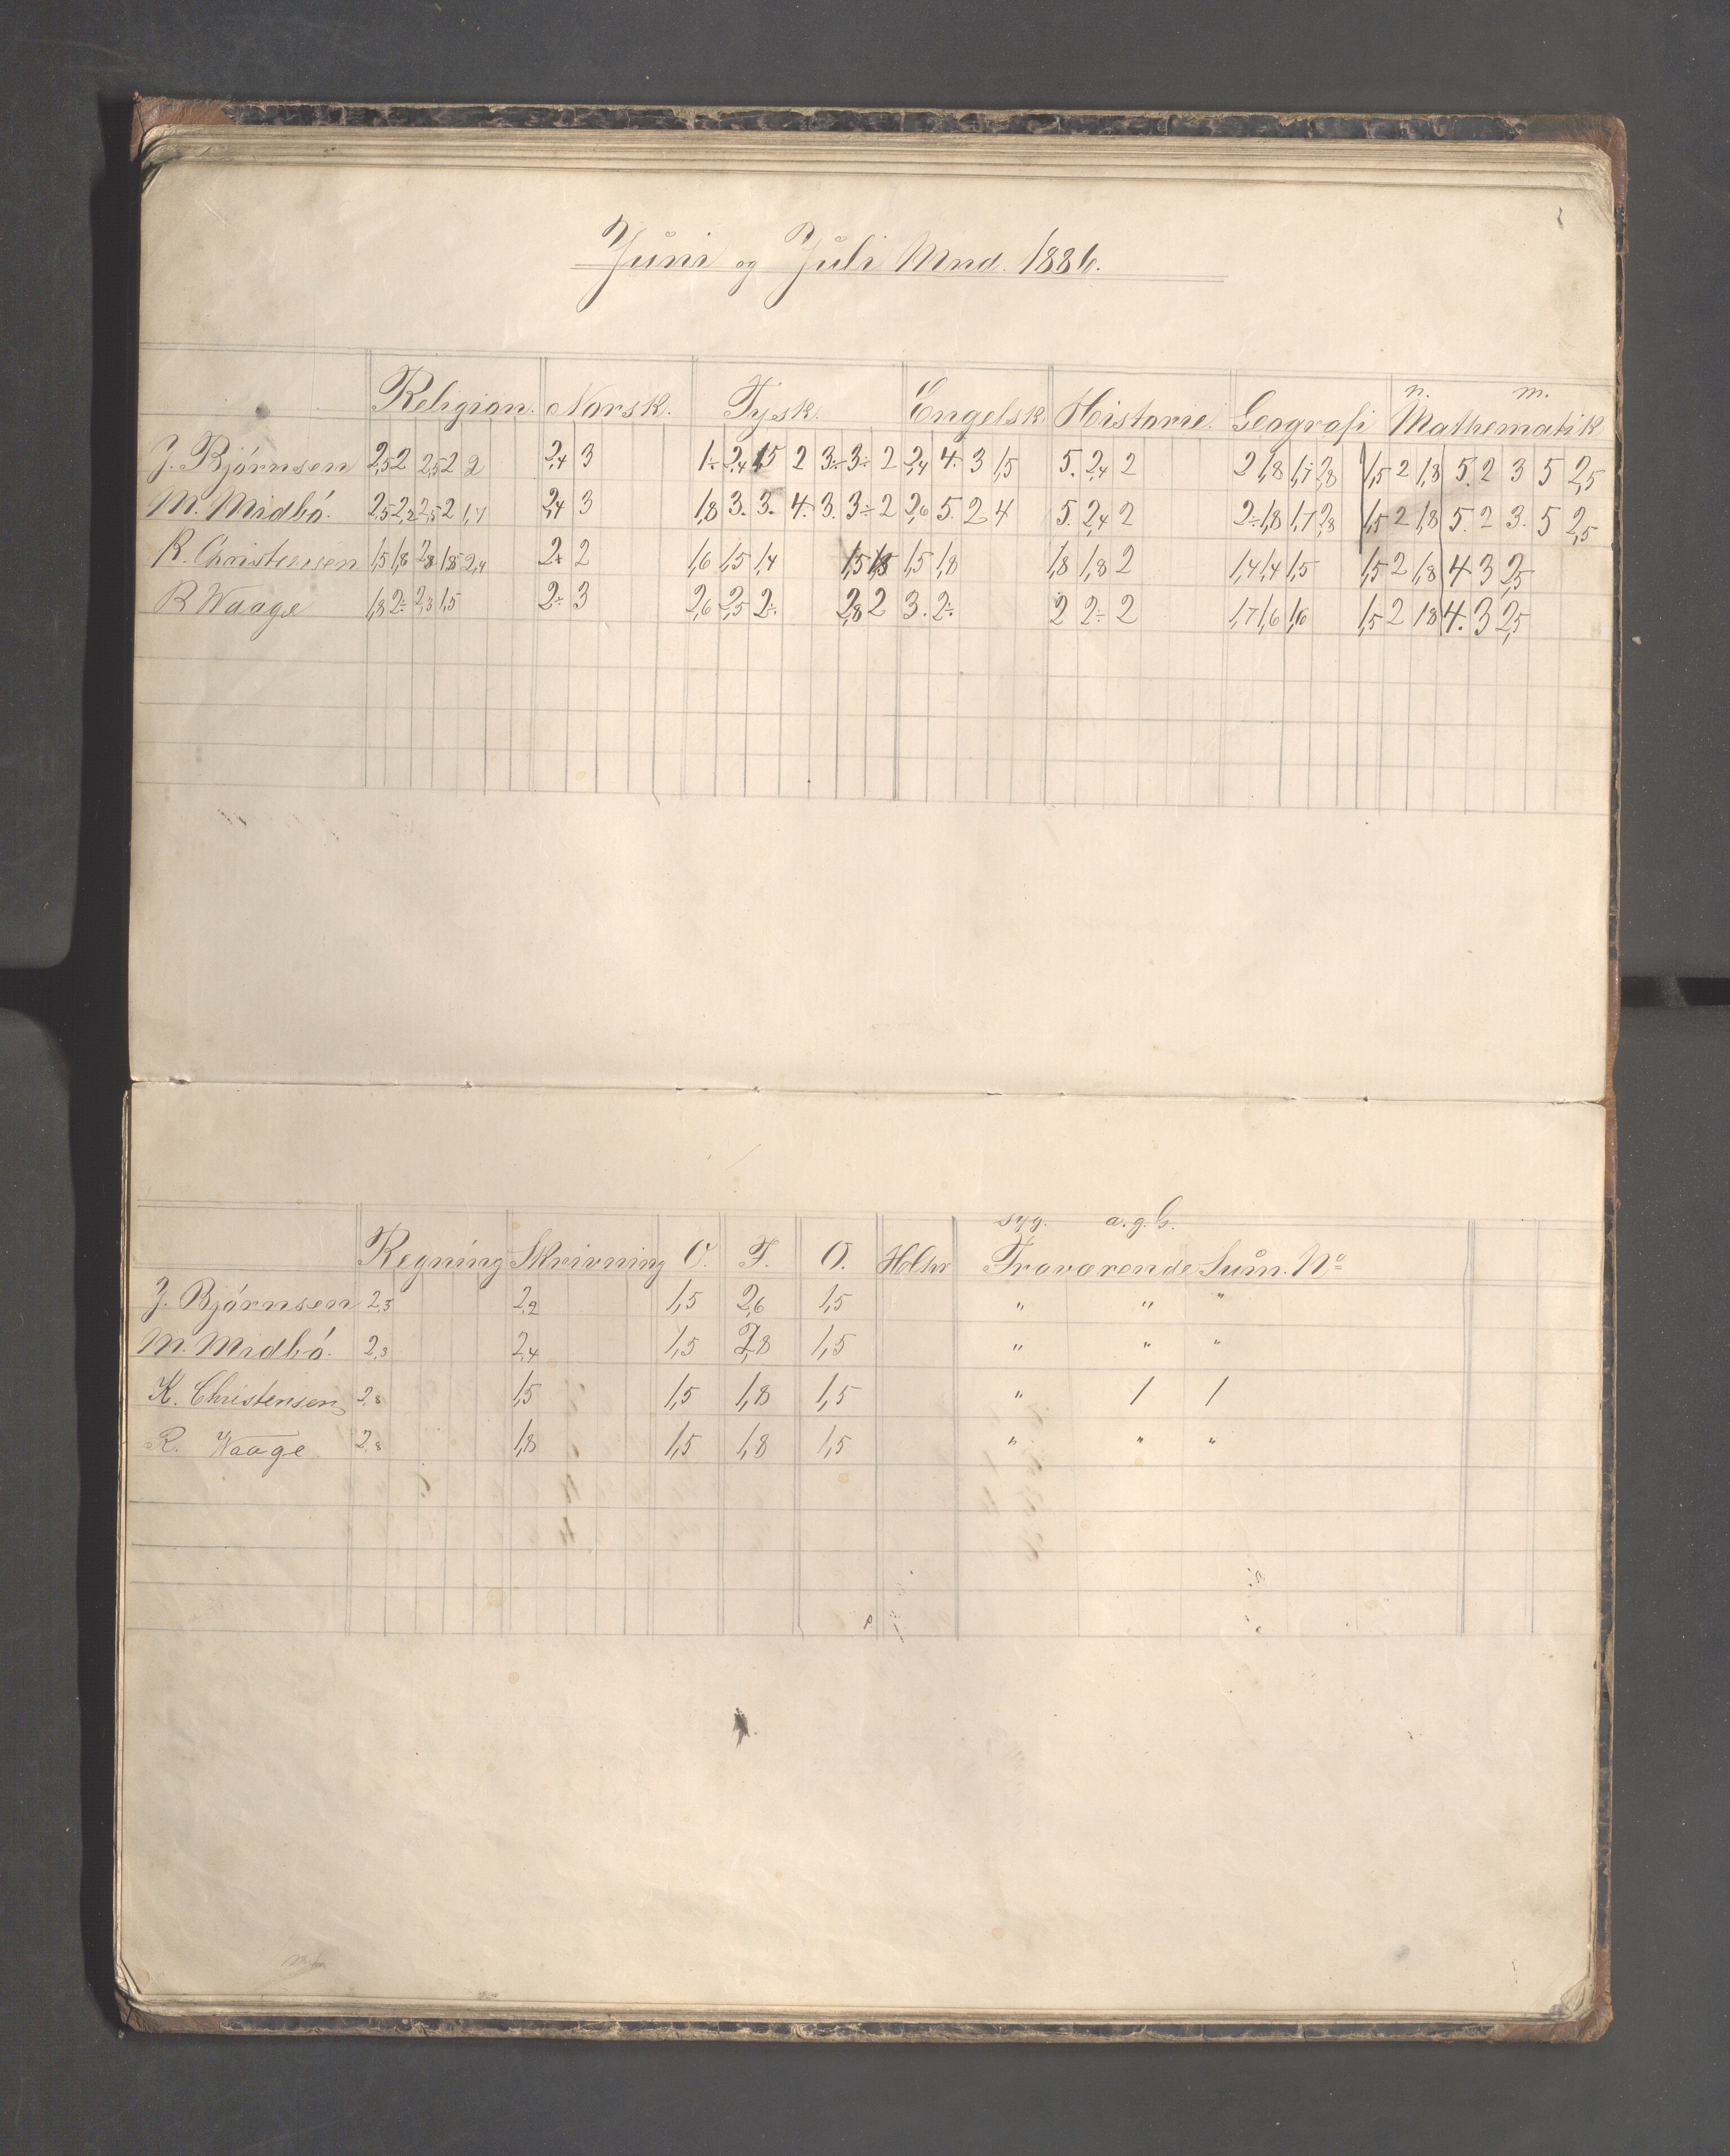 Juni og Juli Mnd. 1886.
n. m.
Religion. Norsk. Tysk. Engelsk Historie. Geografi Mathematik
J. Bjørnsen 2,5 2 2,5 2 2 2,4 3 1÷ 2,4 1,5 2 3÷ 3÷ 2 2,4 4. 3 1,5 5. 2,4 2 2 1,8 1,7 2,8 1,5 2 1,8 5. 2 3 5 2,5
M. Midbö. 2,5 2,2 2,5 2 1,7 2,4 3 1,8 3. 3. 4. 3. 3÷ 2 2,6 5. 2 4 5. 2,4 2 2÷ 1,8 1,7 2,8 1,5 2 1,8 5. 2 3. 5 2,5
K. Christensen 1,5 1,8 2,8 1,8 2,4 2+ 2 1,6 1,5 1,4 1,5 1,8 1,5 1,8 1,8 1,8 2 1,4 1,4 1,5 1,5 2 1,8 4 3 2,5
R Waage 1,8 2÷ 2,3 1,5 2÷ 3 2,6 2,5 2÷. 2,8 2 3. 2÷. 2 2÷ 2 1,7 1,6 1,6 1,5 2 1,8 4. 3 2,5
syg. a.g.G.
Regning Skrivning O. F. O. Hltr Fraværende Sum. No
J. Bjørnsen 2,3 2,2 1,5 2,6 1,5 " " "
M. Midbö. 2,3 2,4 1,5 2,8 1,5 " " "
K. Christensen 2,8 1,5 1,5 1,8 1,5 " 1 1
R. Waage 2,8 1,8 1,5 1,8 1,5 " " "